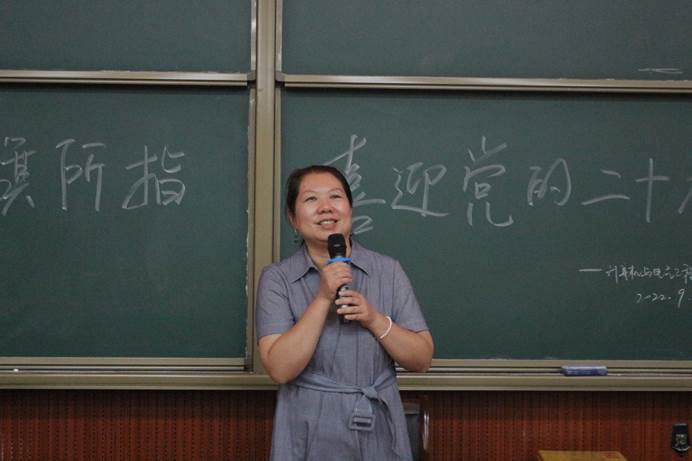 旗所指 喜迎党的二十大
——计算机与电子工程
2022.9